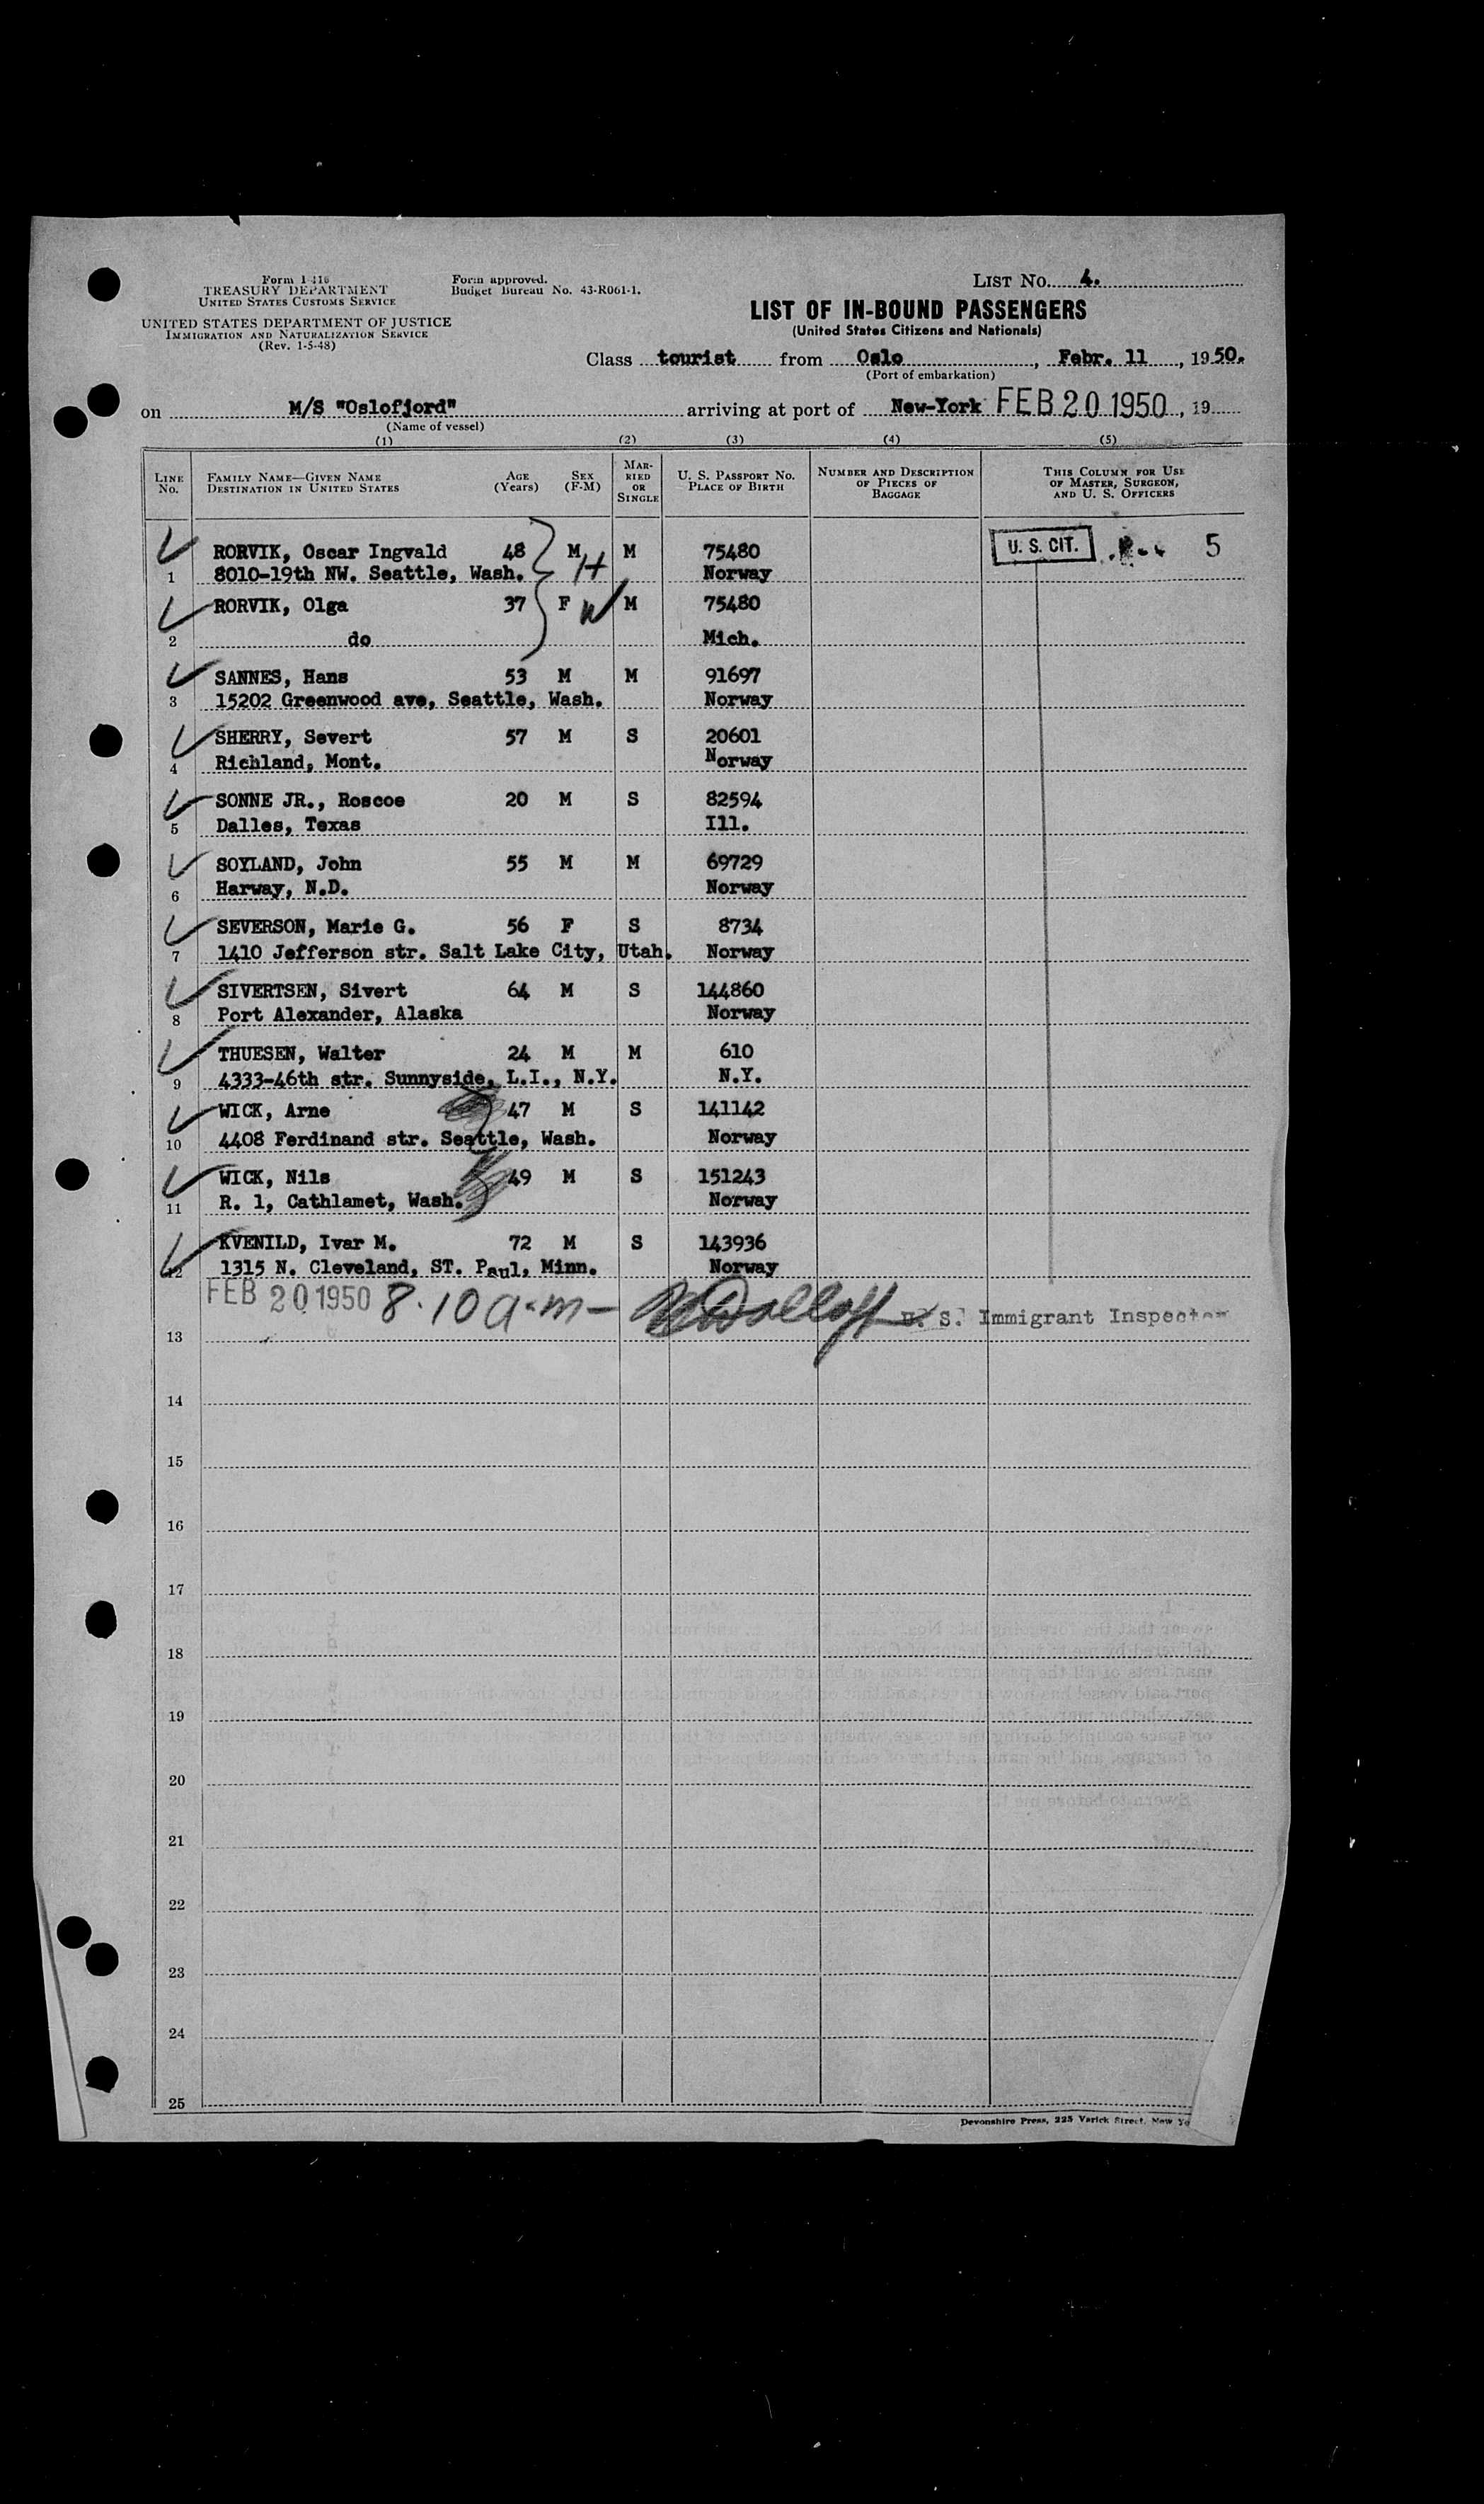 Form I-416
TREASURY DEPARTMENT
UNITED STATES CUSTOMS SERVICE
UNITED STATES DEPARTMENT OF JUSTICE
IMMIGRATION AND NATURALIZATION SERVICE
(Rev. 1-5-48)
Form approved.
Budget Bureau No. 43-R061-1.
LIST NO. 4.
LIST OF IN-BOUND PASSENGERS
(United States Citizens and Nationals)
Class tourist from Oslo, Febr. 11, 1950.
(Port of embarkation)
on M/S "Oslofjord" arriving at port of New-York FEB 20 1950, 19
(Name of vessel)
(1) (2) (3) (4) (5)
LINE NO. FAMILY NAME—GIVEN NAME DESTINATION IN UNITED STATES AGE (Years) SEX (F-M) MARRIED OR SINGLE U. S. PASSPORT NO. PLACE OF BIRTH NUMBER AND DESCRIPTION OF PIECES OF BAGGAGE THIS COLUMN FOR USE OF MASTER, SURGEON, AND U. S. OFFICERS
RORVIK, Oscar Ingvald 48 M H M 75480 U. S. CIT. 5
1 8010-19th NW. Seattle, Wash. Norway
RORVIK, Olga 37 F W M 75480
2 do Mich.
SANNES, Hans 53 M M 91697
3 15202 Greenwood ave, Seattle, Wash. Norway
SHERRY, Severt 57 M S 20601
4 Richland, Mont. Norway
SONNE JR., Roscoe 20 M S 82594
5 Dalles, Texas Ill.
SOYLAND, John 55 M M 69729
6 Harway, N.D. Norway
SEVERSON, Marie G. 56 F S 8734
7 1410 Jefferson str. Salt Lake City, Utah. Norway
SIVERTSEN, Sivert 64 M S 144860
8 Port Alexander, Alaska Norway
THUESEN, Walter 24 M M 610
9 4333-46th str. Sunnyside, L.I., N.Y. N.Y.
WICK, Arne 47 M S 141142
10 4408 Ferdinand str. Seattle, Wash. Norway
WICK, Nils 49 M S 151243
11 R. 1, Cathlamet, Wash. Norway
KVENILD, Ivar M. 72 M S 143936
12 1315 N. Cleveland, ST. Paul, Minn. Norway
FEB 20 1950 8.10 a.m— U. S. Immigrant Inspector
13
14
15
16
17
18
19
20
21
22
23
24
25
Devonshire Press, 225 Varick Street, New Yo